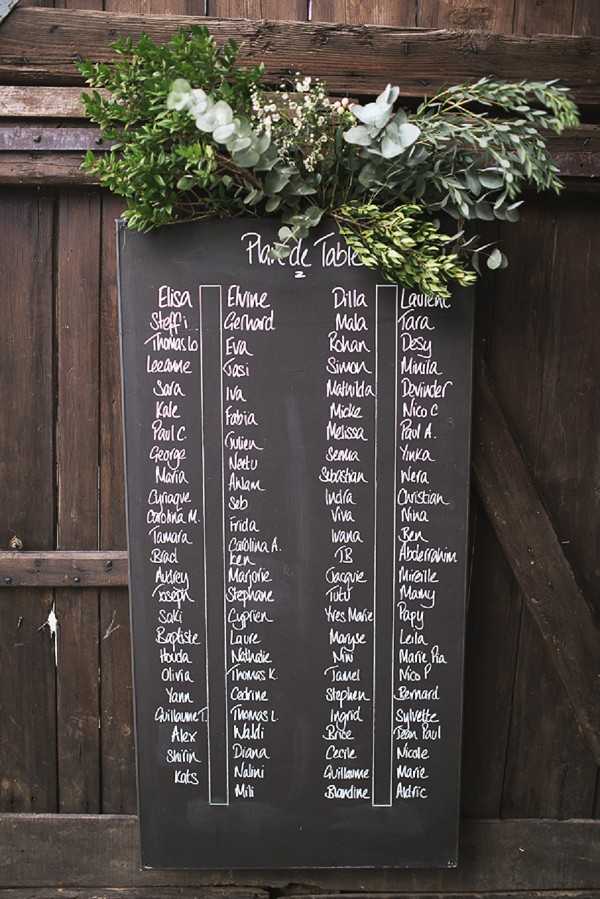 Plan de Table
Elisa
Steffi
Thomas Lo
Leeanne
Sara
Kate
Paul C.
George
Maria
Cyriaque
Carolina M.
Tamara
Brad
Audrey
Joseph
Saki
Baptiste
Houda
Olivia
Yann
Guillaume T.
Alex
Shirin
Kats
Elvine
Gerhard
Eva
Jasi
Iva
Fabia
Julien
Neetu
Anlam
Seb
Frida
Carolina A.
Ken
Marjorie
Stephane
Cyprien
Laure
Nathalie
Thomas K.
Cedrine
Thomas L
Waldi
Diana
Nalini
Mili
Dilla
Mala
Rohan
Simon
Mathilda
Micke
Melissa
Senua
Sebastian
Indra
Viva
Ivana
JB
Jacquie
Tutu
Yves Marie
Maryse
Nini
Jamel
Stephen
Ingrid
Brice
Cecile
Guillaume
Blandine
Laurent
Tara
Desy
Minila
Devinder
Nico C
Paul A.
Yinka
Wera
Christian
Nina
Ben
Abderrahim
Mireille
Mamy
Papy
Leila
Marie Pia
Nico P
Bernard
Sylvette
Jean Paul
Nicole
Marie
Aldric